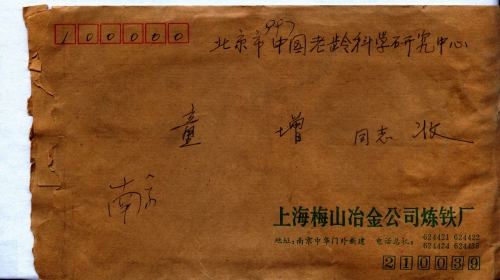 100000
997
北京市中国老龄科学研究中心
童增 同志 收
南京
上海梅山冶金公司炼铁厂
地址:南京中华门外新建 电话总机: 624421 624422
624424 624435
210039